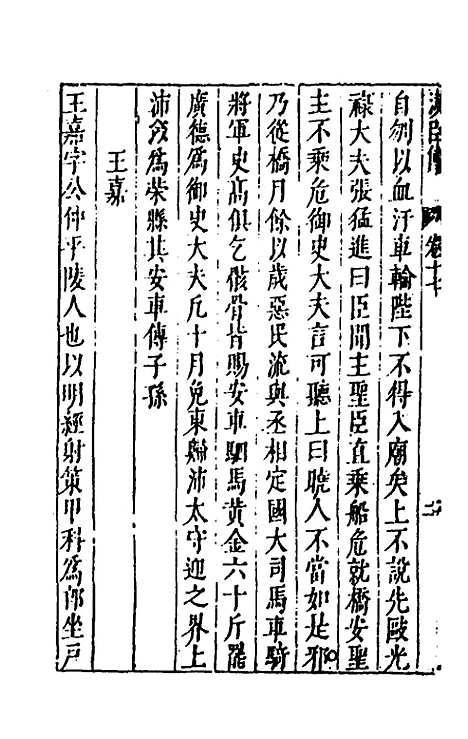 自刎以血汙車輪陛下不得入廟矣上不說先敺光
祿大夫張猛進曰臣聞主聖臣直乘船危就橋安聖
主不乘危御史大夫言可聽上曰曉人不當如是邪
乃從橋月餘以歲惡民流與丞相定國大司馬車騎
將軍史高俱乞骸骨皆賜安車駟馬黃金六十斤罷
廣德為御史大夫凡十月免東歸沛太守迎之界上
沛以為榮縣其安車傳子孫
王嘉
王嘉字公仲平陵人也以明經射策甲科為郎坐戶
卷十七